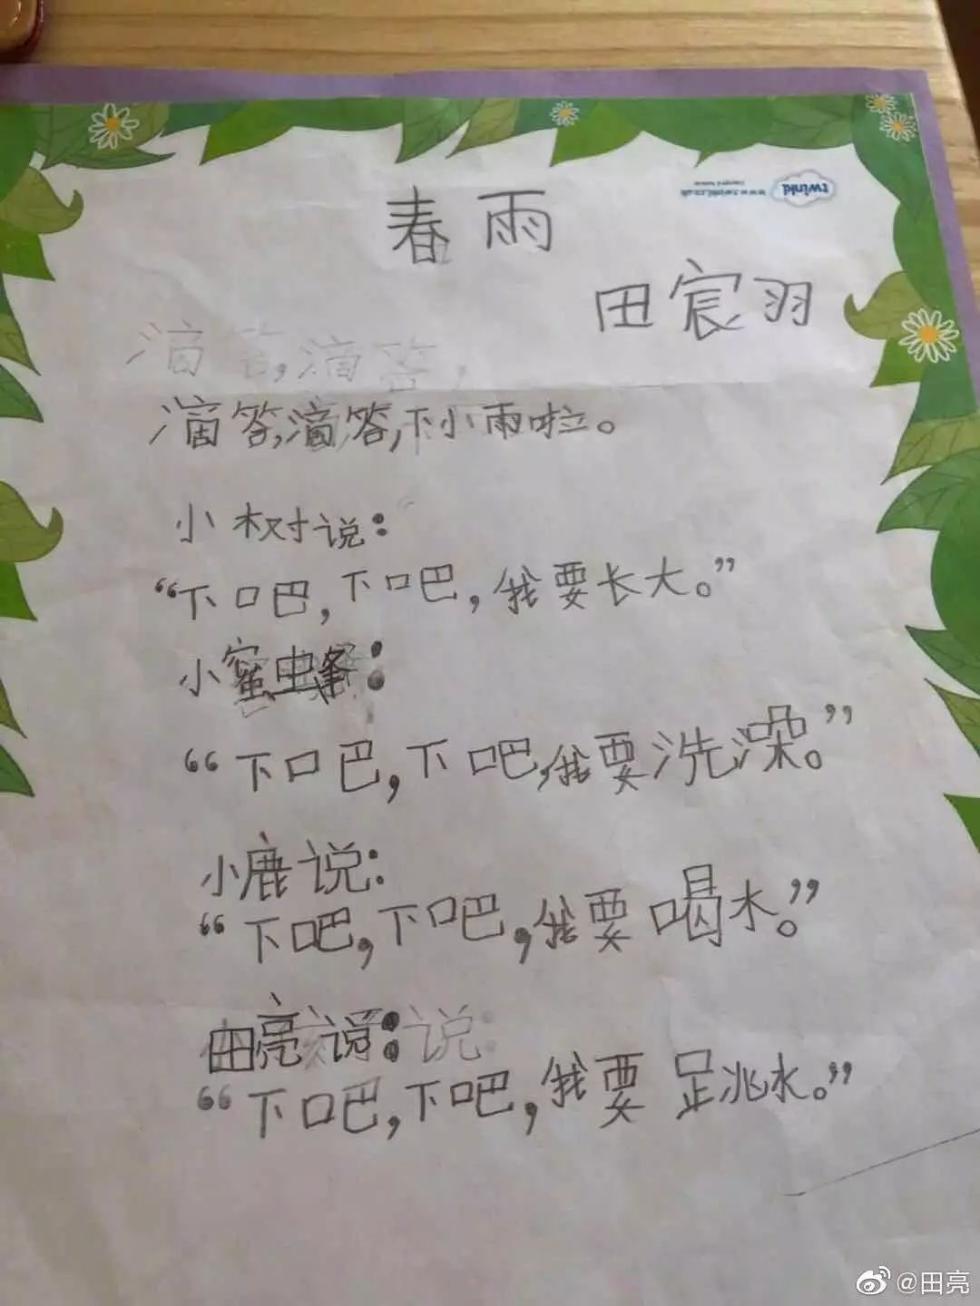 twinkl
www.twinkl.co.uk
春雨
田宸羽
滴答,滴答,
滴答,滴答,下小雨啦。
小树说:
“下吧,下吧,我要长大。”
小蜜蜂:
“下吧,下吧,我要洗澡。”
小鹿说:
“下吧,下吧,我要喝水。”
田亮说:说:
“下吧,下吧,我要跳水。”
@田亮